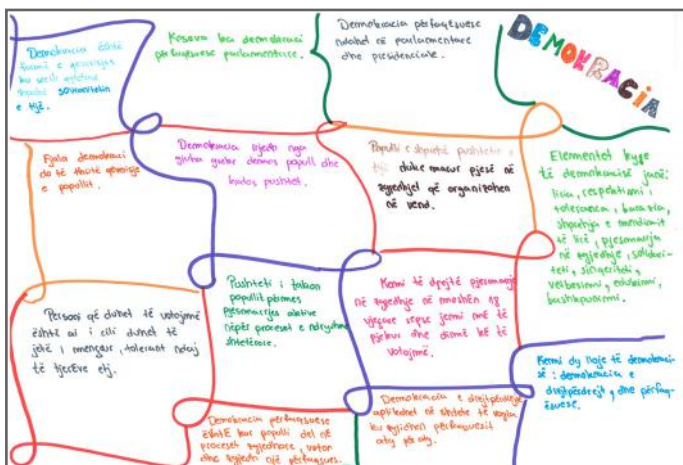 Demokracia është
formë e qeverisjes
ku secili qytetar
shpreh sovranitetin
e tij.
Kosova ka demokraci
përfaqësuese parlamentare.
Demokracia përfaqësuese
ndahet në parlamentare
dhe presidenciale.
DEMOKRACIA
Fjala demokraci
do të thotë qeverisje
e popullit.
Demokracia rrjedh nga
gjuha greke demos popull dhe
kratos pushtet.
Populli e shpreh pushtetin e
tij duke marrur pjesë në
zgjedhjet që organizohen
në vend.
Elementet kyqe
të demokracisë janë:
liria, respektimi,
toleranca, barazia,
shprehja e mendimit
të lirë, pjesmarrja
në zgjedhje, solidari-
teti, sinqeriteti,
edukimi,
bashkëpunimi.
Personi që duhet të votojmë
është ai i cili duhet të
jetë i mençur, tolerant ndaj
të tjerëve etj.
Pushteti i takon
popullit përmes
pjesmarrjes aktive
nëpër proceset e ndryshme
shtetërore.
Kemi të drejtë pjesmarrje
në zgjedhje në moshën 18
vjeçare sepse jemi më të
pjekur dhe dimë kë të
votojmë.
Kemi dy lloje të demokraci-
së: demokracia e
drejtpërdrejtë, dhe përfaq-
ësuese.
Demokracia përfaqësuese
është kur populli del në
proceset zgjedhore, voton
dhe zgjedh një përfaqësues.
Demokracia e drejtpërdrejtë
aplikohet në shtete të vogla
ku zgjidhen përfaqësuesit
aty për aty.